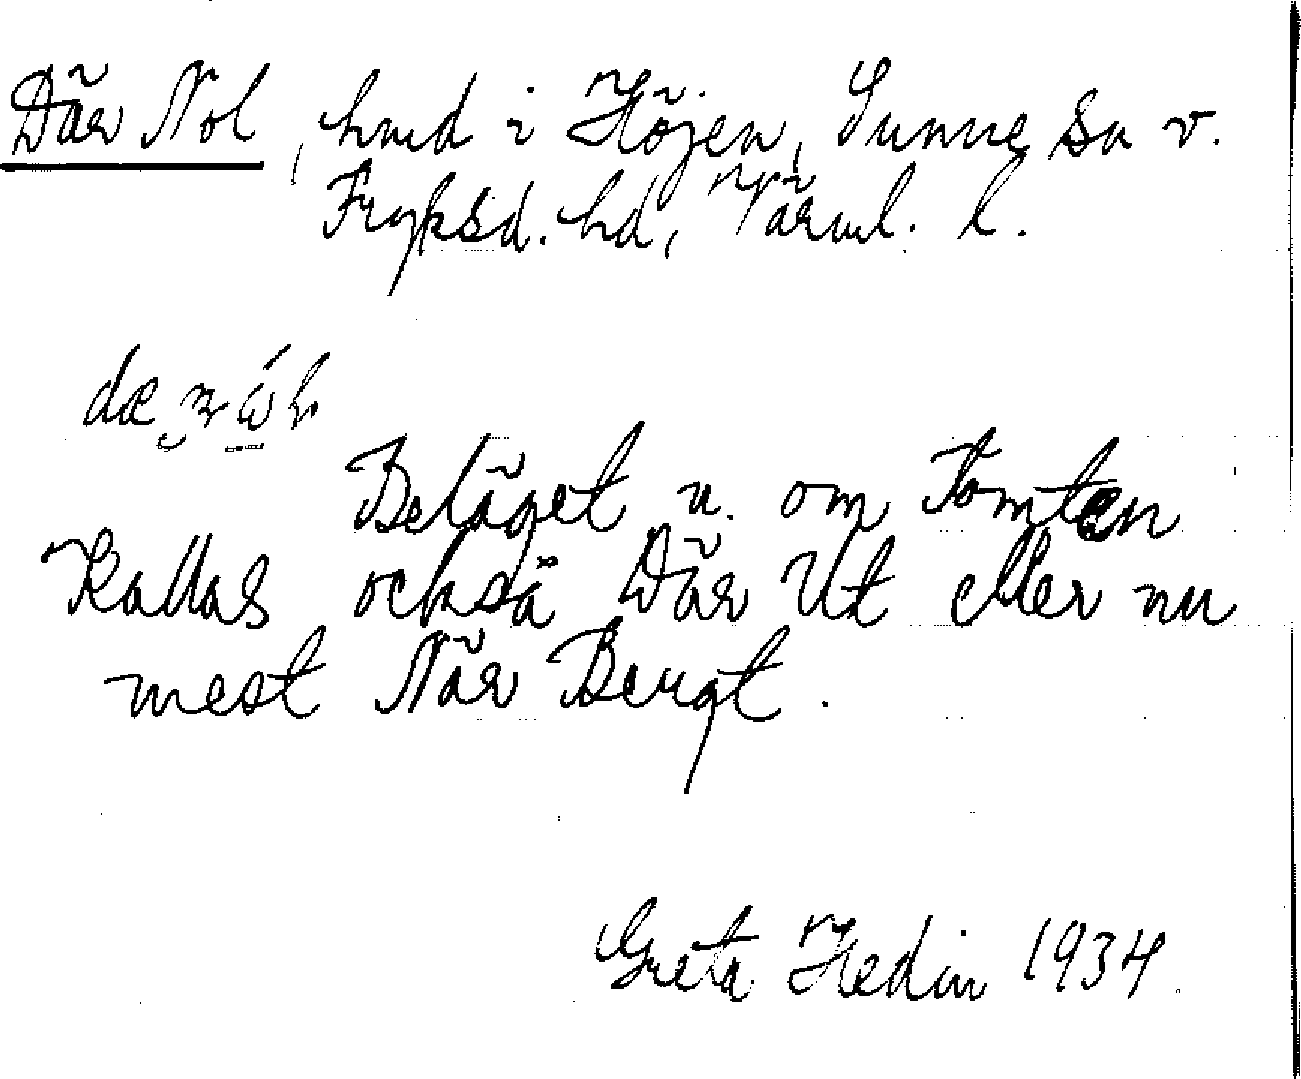 Där Nol, hmd i Höjen, Sunne sn v.
Fryksd. hd, Värml. l.
Beläget n. om Tomten
Kallas också Där Ut eller nu
mest När Bergt.
Greta Hedin 1934.